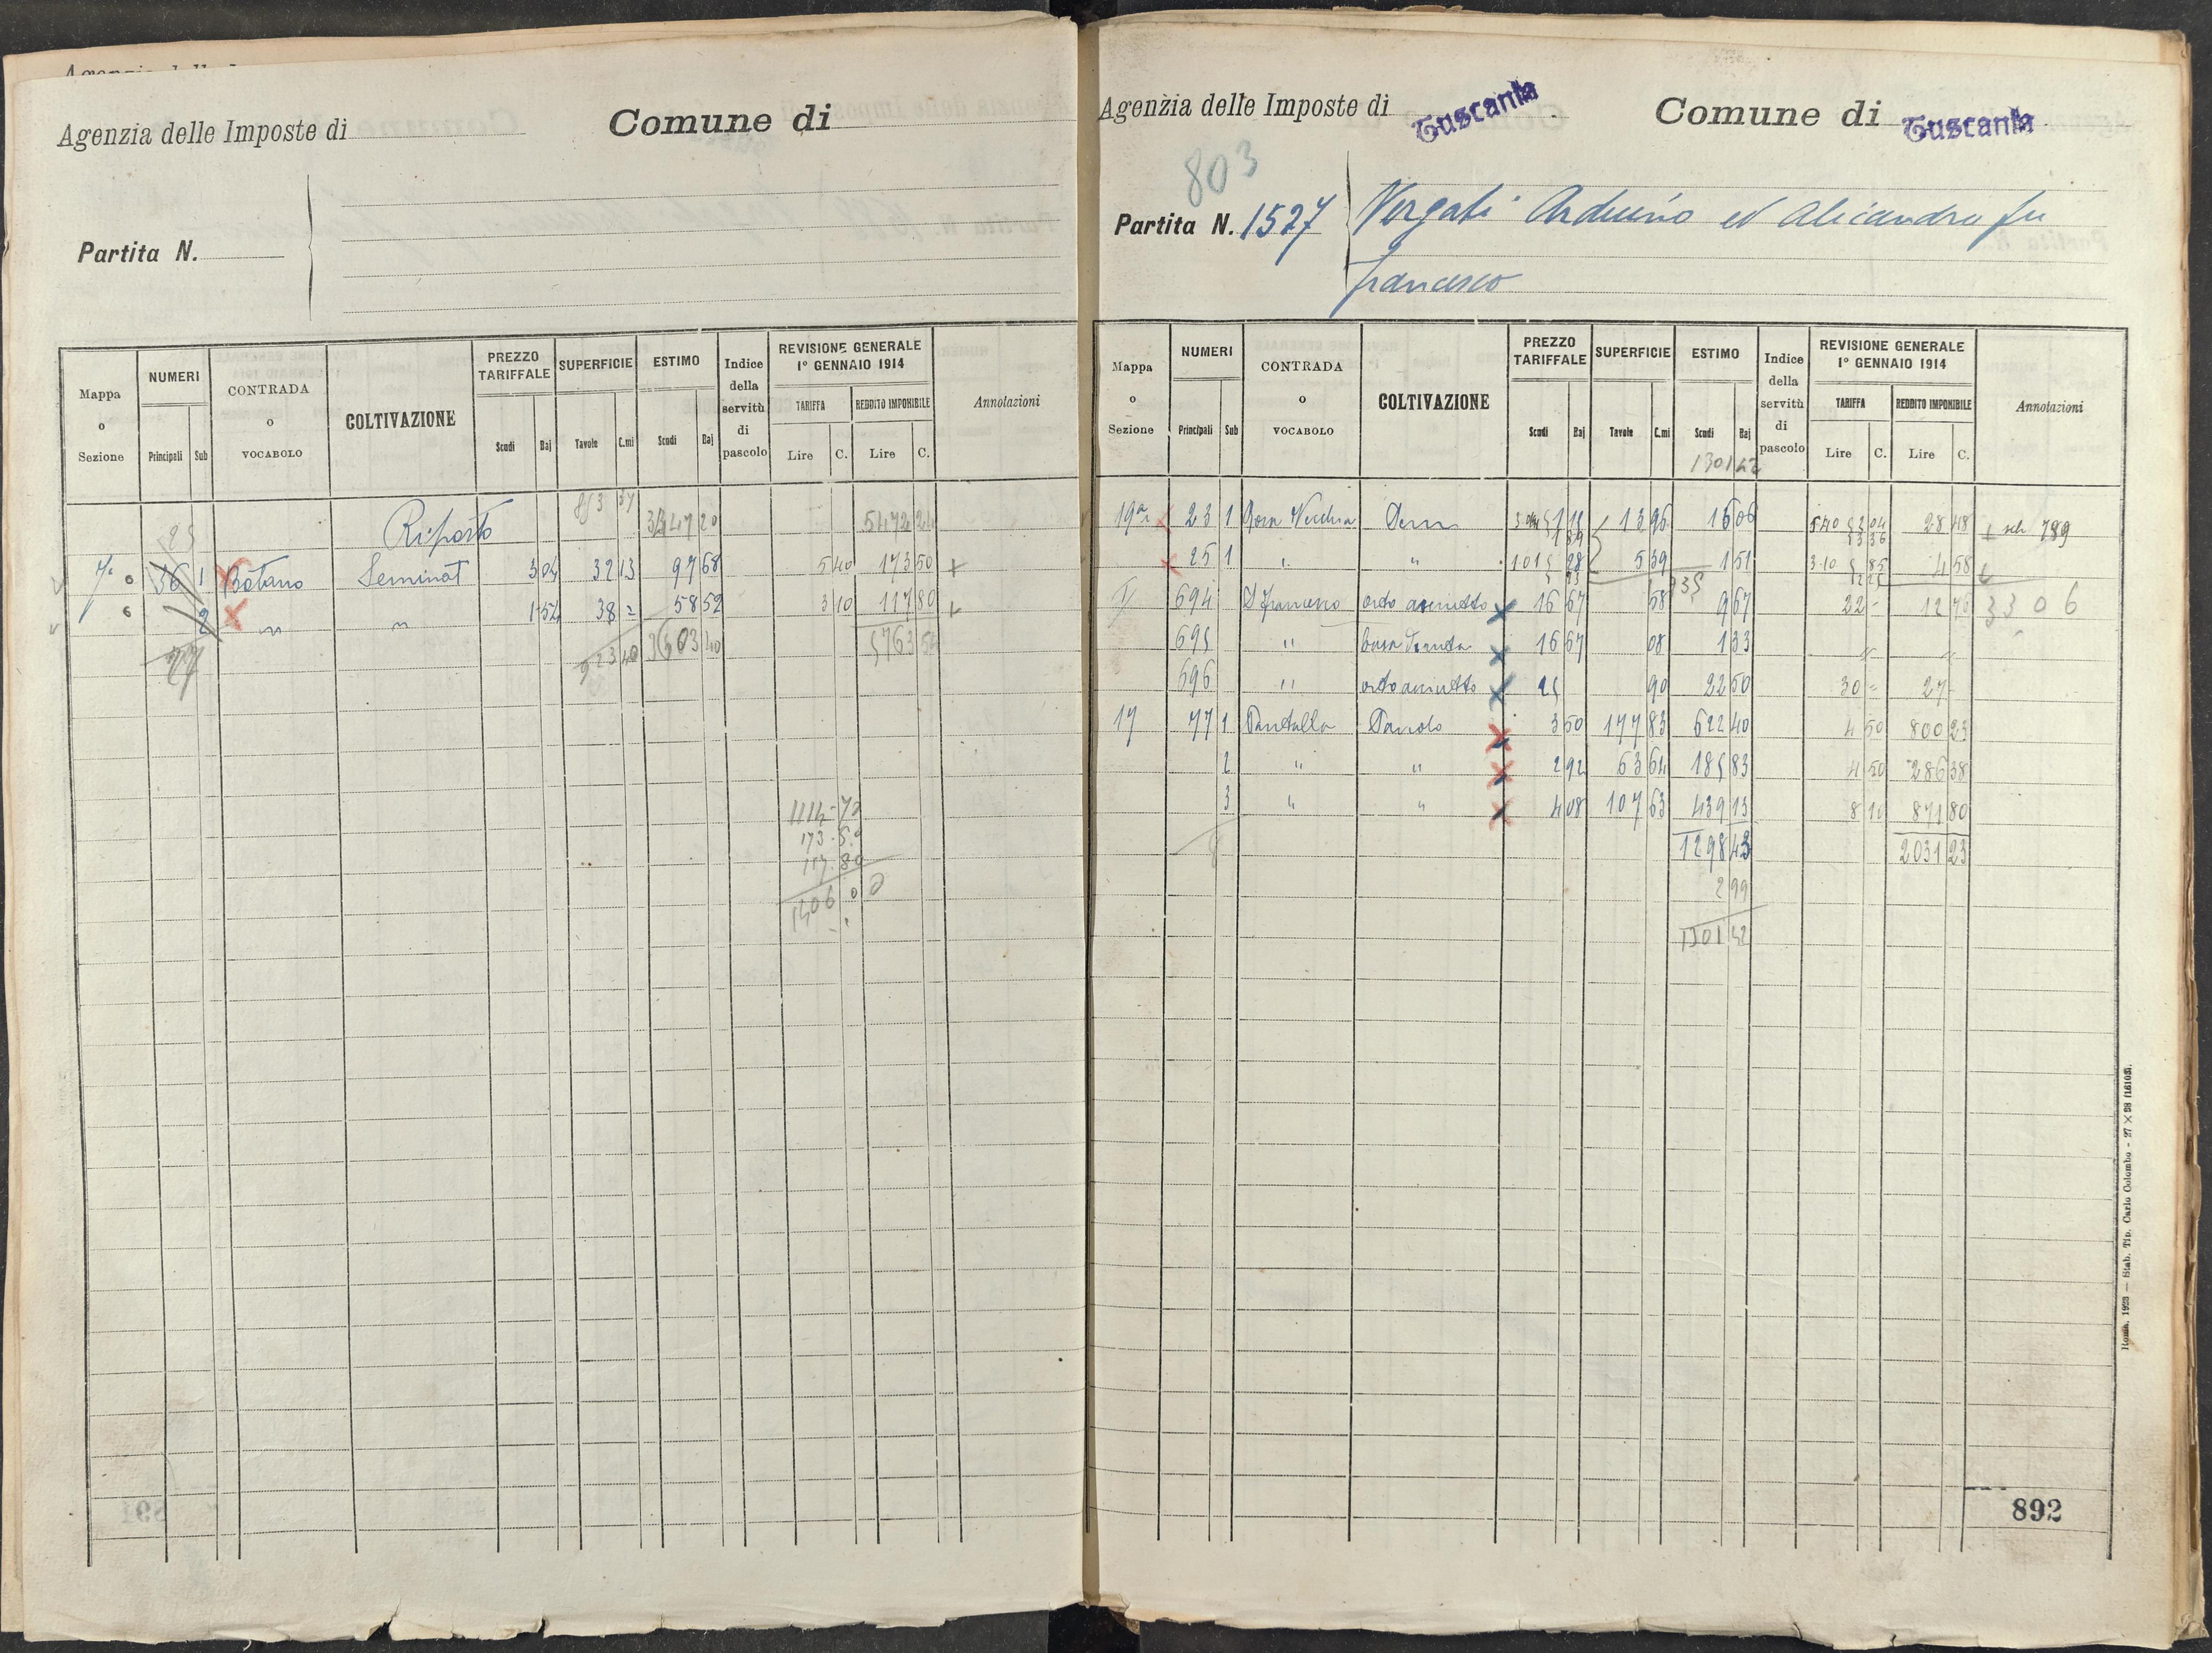 Agenzia delle Imposte di
Comune di
Partita N.
Mappa o Sezione
NUMERI
Principali Sub
CONTRADA O VOCABOLO
COLTIVAZIONE
PREZZO TARIFFALE
Scudi Baj
SUPERFICIE
Tavole C.mi
ESTIMO
Scudi Baj
Indice della servitù di pascolo
REVISIONE GENERALE 1° GENNAIO 1914
TARIFFA
Lire C.
REDDITO IMPONIBILE
Lire C.
Annotazioni
Riporto 5472
7a 36 1 Seminat 3 04 32 13 97 68 5 40 173 50 +
2 " " 1 54 38 = 58 52 3 10 117 80 +
1114-72
173-50
117 80
1406 02
Agenzia delle Imposte di Tuscania
Comune di Tuscania
803
Partita N. 1527 Vergati Arduino ed Alicandro fu
Francesco
Mappa o Sezione
NUMERI
Principali Sub
CONTRADA O VOCABOLO
COLTIVAZIONE
PREZZO TARIFFALE
Scudi Baj
SUPERFICIE
Tavole C.mi
ESTIMO
Scudi Baj
1301 42
Indice della servitù di pascolo
REVISIONE GENERALE 1° GENNAIO 1914
TARIFFA
Lire C.
REDDITO IMPONIBILE
Lire C.
Annotazioni
19a 23 1 Vecchia 13 96 15 06 28 48 789
25 1 " " 5 39 1 51 3 10 4 58
694 S Francesco orto asciutto 16 67 58 9 67 22 - 12 76 3306
695 " 16 67 08 1 33
696 " orto asciutto 25 90 22 50 30 = 27
17 77 1 3 50 177 83 622 40 4 50 800 23
2 " " 2 92 63 64 185 83 4 50 286 38
3 " " 4 08 107 63 439 13 8 10 871 80
1298 43 2031 23
2 99
1301 42
892
Roma, 1923 — Stab. Tip. Carlo Colombo - 27 × 38